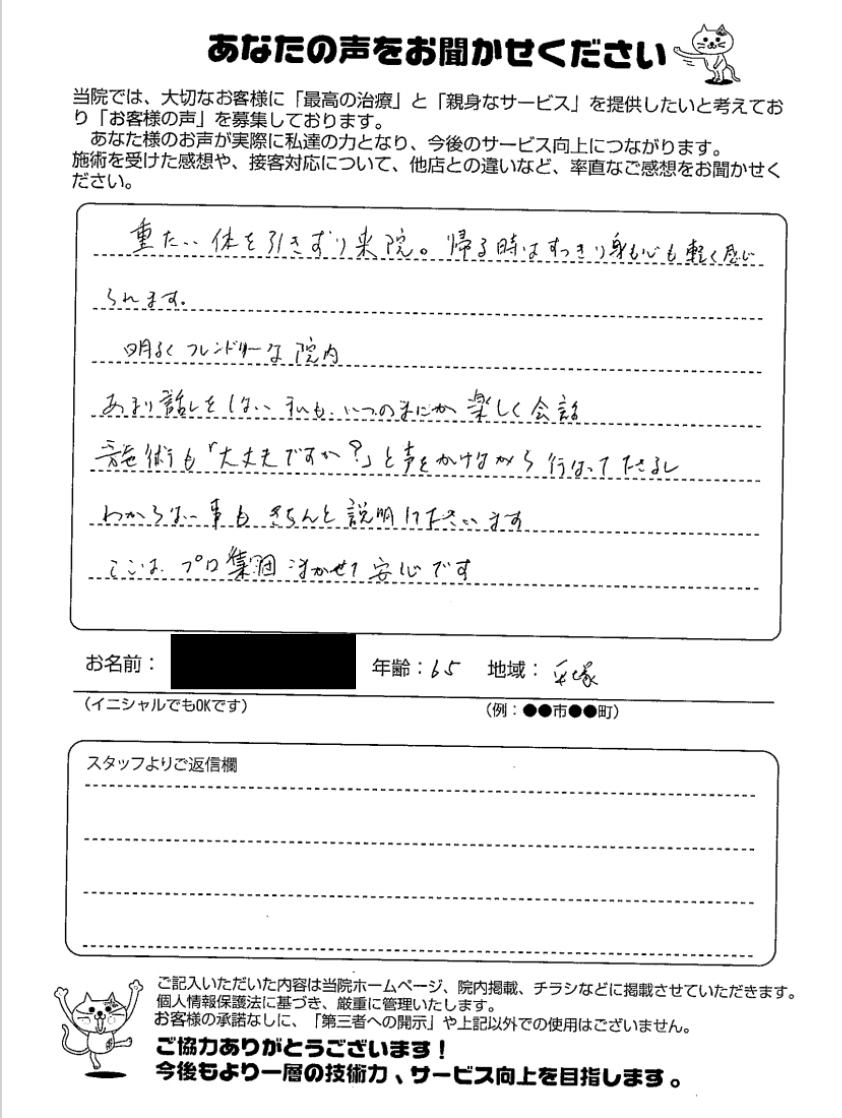 あなたの声をお聞かせください
当院では、大切なお客様に「最高の治療」と「親身なサービス」を提供したいと考えてお
り「お客様の声」を募集しております。
あなた様のお声が実際に私達の力となり、今後のサービス向上につながります。
施術を受けた感想や、接客対応について、他店との違いなど、率直なご感想をお聞かせく
ださい。
重たい体を引きずり来院。帰る時はすっきり身も心も軽く感じ
られます。
明るくフレンドリーな院内
あまり話しをしない私も、いつのまにか楽しく会話
施術も「大丈夫ですか?」と声をかけながら行なって下さるし
わからない事もきちんと説明して下さいます
ここは、プロ集団 まかせて安心です
お名前:
年齢:65 地域:平塚
(イニシャルでもOKです)
(例:●●市●●町)
スタッフよりご返信欄
ご記入いただいた内容は当院ホームページ、院内掲載、チラシなどに掲載させていただきます。
個人情報保護法に基づき、厳重に管理いたします。
お客様の承諾なしに、「第三者への開示」や上記以外での使用はございません。
ご協力ありがとうございます!
今後もより一層の技術力、サービス向上を目指します。